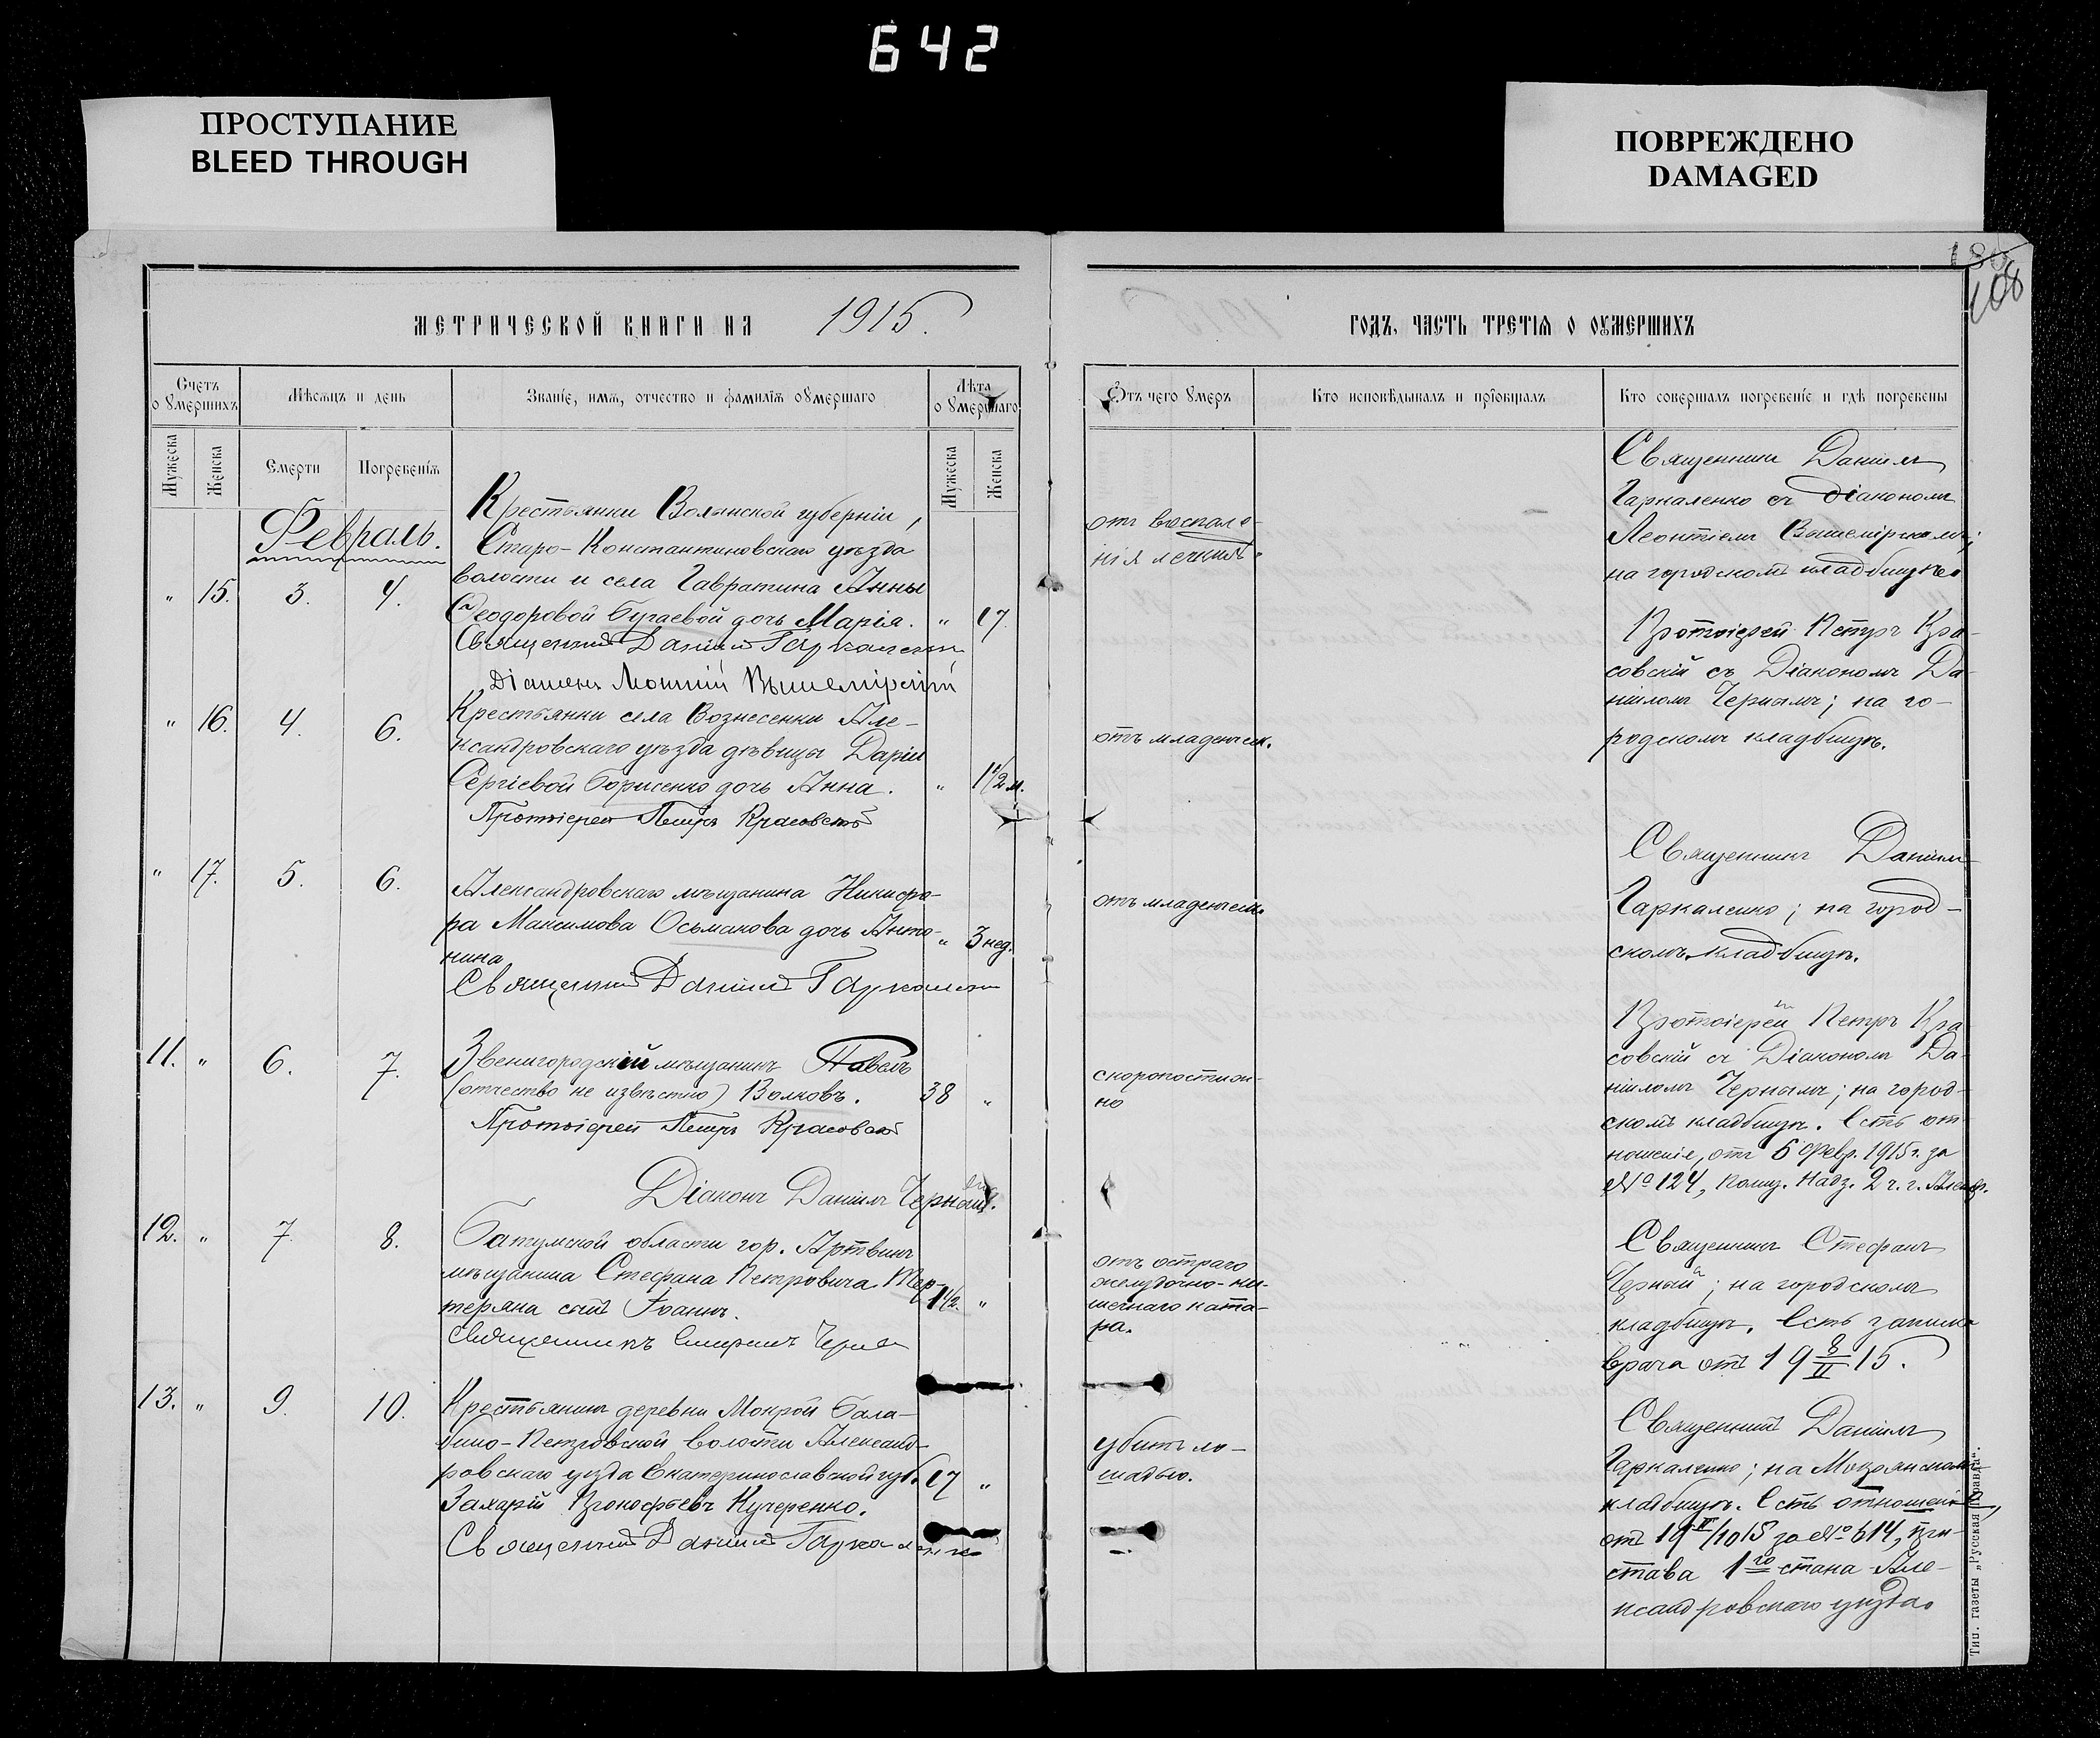 642
ПРОСТУПАНИЕ
BLEED THROUGH
ПОВРЕЖДЕНО
DAMAGED
108
МЕТРИЧЕСКОЙ КНИГИ НА 1915.
Счетъ о умершихъ
Мѣсяцъ и день
Званіе, имя, отчество и фамилія умершаго
Лѣта умершаго
Мужеска
Женска
Смерти
Погребенія
Мужеска
Женска
Февраль.
Крестьянки Волынской губерніи,
Старо-Константиновскаго уѣзда
волости и села Гавратина Анны
" 15. 3. 4. Ѳеодоровой Бугаевой дочь Марія. " 17.
Священникъ Даніилъ Гаркаленко
Діаконъ Вышемірскій
" 16. 4. 6. Крестьянки села Вознесенки Але-
ксандровскаго уѣзда дѣвицы Даріи
Сергіевой Борисенко дочь Анна. " 1 1/2 м.
Протоіерей Петръ Красовскій
" 17. 5. 6. Александровскаго мѣщанина Никифо-
ра Максимова Осьмакова дочь Анто- " 3 нед.
нина
Священникъ Даніилъ Гаркаленко
11. " 6. 7. Звенигородскій мѣщанинъ Павелъ
(отчество не извѣстно) Волковъ. 38 "
Протоіерей Петръ Красовскій
Діаконъ Даніилъ Черный.
12. " 7. 8. Батумской области гор. Артвинъ
мѣщанина Стефана Петровича Тер-
теряна сынъ Іоаннъ. 1 1/2. "
Священникъ Стефанъ Черный
13. " 9. 10. Крестьянинъ деревни Мокрой Бала-
бино-Петровской волости Александ-
ровскаго уѣзда Екатеринославской губ. 67 "
Захарій Прокофьевъ Кучеренко.
Священникъ Даніилъ Гаркаленко
ГОДЪ, ЧАСТЬ ТРЕТІЯ О УМЕРШИХЪ
Отъ чего умеръ
Кто исповѣдывалъ и пріобщалъ
Кто совершалъ погребеніе и гдѣ погребены
отъ воспале-
нія легкихъ.
Священникъ Даніилъ
Гаркаленко съ діакономъ
Леонтіемъ Вышемірскимъ;
на городскомъ кладбищѣ.
отъ младенческ.
Протоіерей Петръ Кра-
совскій съ Діакономъ Да-
ніиломъ Чернымъ; на го-
родскомъ кладбищѣ.
отъ младенческ.
Священникъ Даніилъ
Гаркаленко; на город-
скомъ кладбищѣ.
скоропостиж-
но
Протоіерей Петръ Кра-
совскій съ Діакономъ Да-
ніиломъ Чернымъ; на город-
скомъ кладбищѣ. Есть от-
ношеніе, отъ 6 Февр. 1915 г. за
№ 124, Надз. 2 ч. г. Алекср.
отъ остраго
желудочно-ки-
шечнаго ката-
ра.
Священникъ Стефанъ
Черный; на городскомъ
кладбищѣ. Есть записка
врача отъ 19 8/II 15.
убитъ ло-
шадью.
Священникъ Даніилъ
Гаркаленко; на Мокрянскомъ
кладбищѣ. Есть отношеніе,
отъ 19 II/10 15 за № 614, при-
става 1го стана Але-
ксандровскаго уѣзда.
Тип. газеты „Русская Правда".